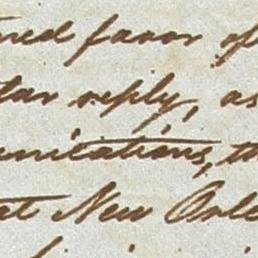 red favor of
lar reply, as
unications, th
at New Orle